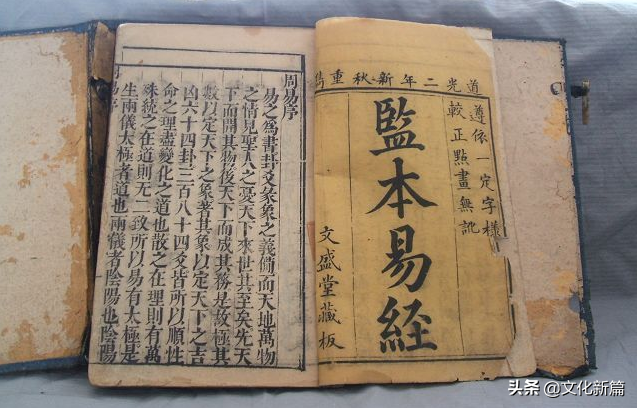 道光二年新秋重鐫
遵依一定字樣
較正點畫無訛
監本易經
文盛堂藏板
周易序
易之爲書卦爻彖象之義備而天地萬物
之情見聖人之憂天下來世其至矣先天
下而開其物後天下而成其務是故極其
數以定天下之象著其象以定天下之吉
凶六十四卦三百八十四爻皆所以順性
命之理盡變化之道也散之在理則有萬
殊統之在道則无二致所以易有太極是
生兩儀太極者道也兩儀者陰陽也陰陽
易序
头条 @文化新篇